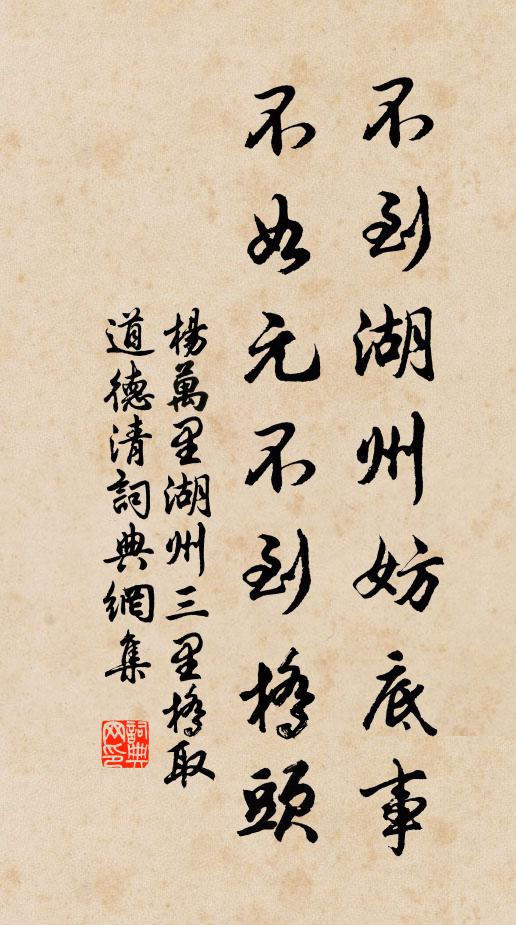 不到湖州妨底事
不如元不到橋頭
楊萬里湖州三里橋取
道德清詞典網集
詞典
网印